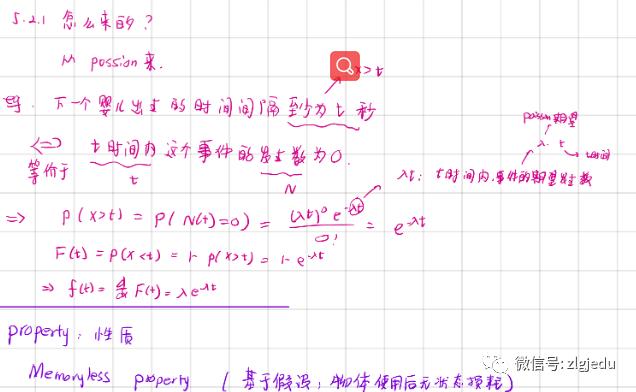 5.2.1 怎么来的?
从 possion来.
x>t
导. 下一个婴儿出生的时间间隔至少为 t 秒
<=> 等价于
t时间内这个事件的发生数为0.
t
N
possion期望
λ. t
t时间
λt: t时间内,事件的期望发生数
=> P(x>t) = P(N(t)=0) = (λt)⁰e^(-λt)/0! = e^(-λt)
F(t) = P(x<t) = 1- P(x>t) = 1- e^(-λt)
=> f(t) = d/dt F(t) = λe^(-λt)
property: 性质
Memoryless property (基于假设:物体使用后无状态损耗)
微信号: zlgjedu